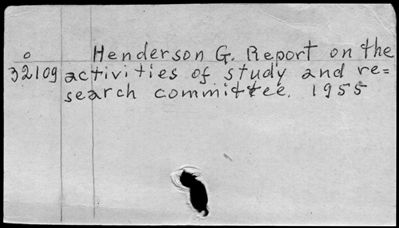 o Henderson G. Report on the
32109 activities of study and re=
search committee. 1955